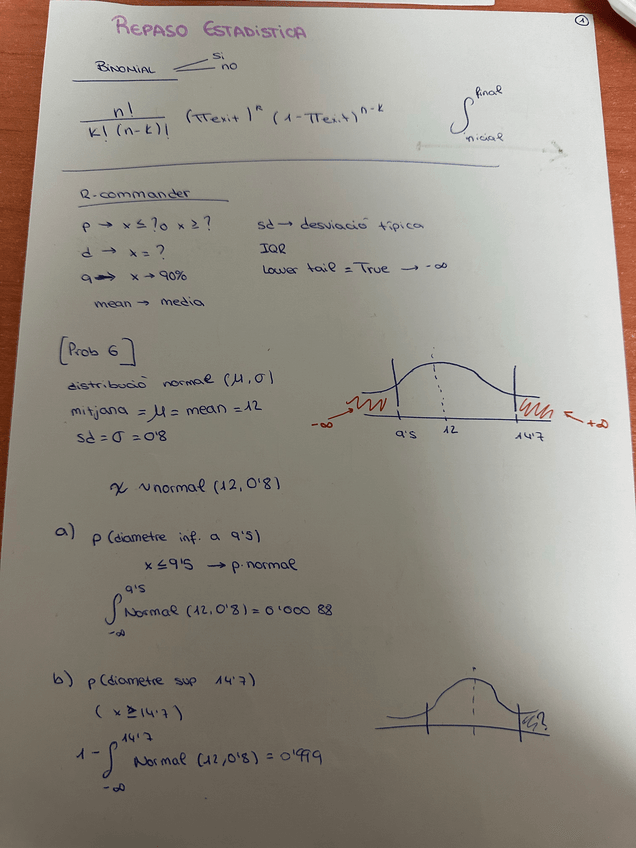 ①
REPASO ESTADÍSTICA
BINOMIAL
Si
no
n! / k! (n-k)! (πexit)ᵏ (1-πexit)ⁿ⁻ᵏ
∫ final inicial
R-commander
p → x ≤ ? o x ≥ ?
d → x = ?
q → x → 90%
mean → media
sd → desviació típica
IQR
Lower tail = True → -∞
[Prob 6]
distribució normal (μ, σ)
mitjana = μ = mean = 12
sd = σ = 0'8
-∞
9'5
12
14'7
+∞
x ~ normal (12, 0'8)
a) p (diametre inf. a 9'5)
x ≤ 9'5 → p.normal
∫ 9'5 -∞ Normal (12, 0'8) = 0'000 88
b) p (diametre sup 14'7)
(x ≥ 14'7)
1 - ∫ 14'7 -∞ Normal (12, 0'8) = 0'999